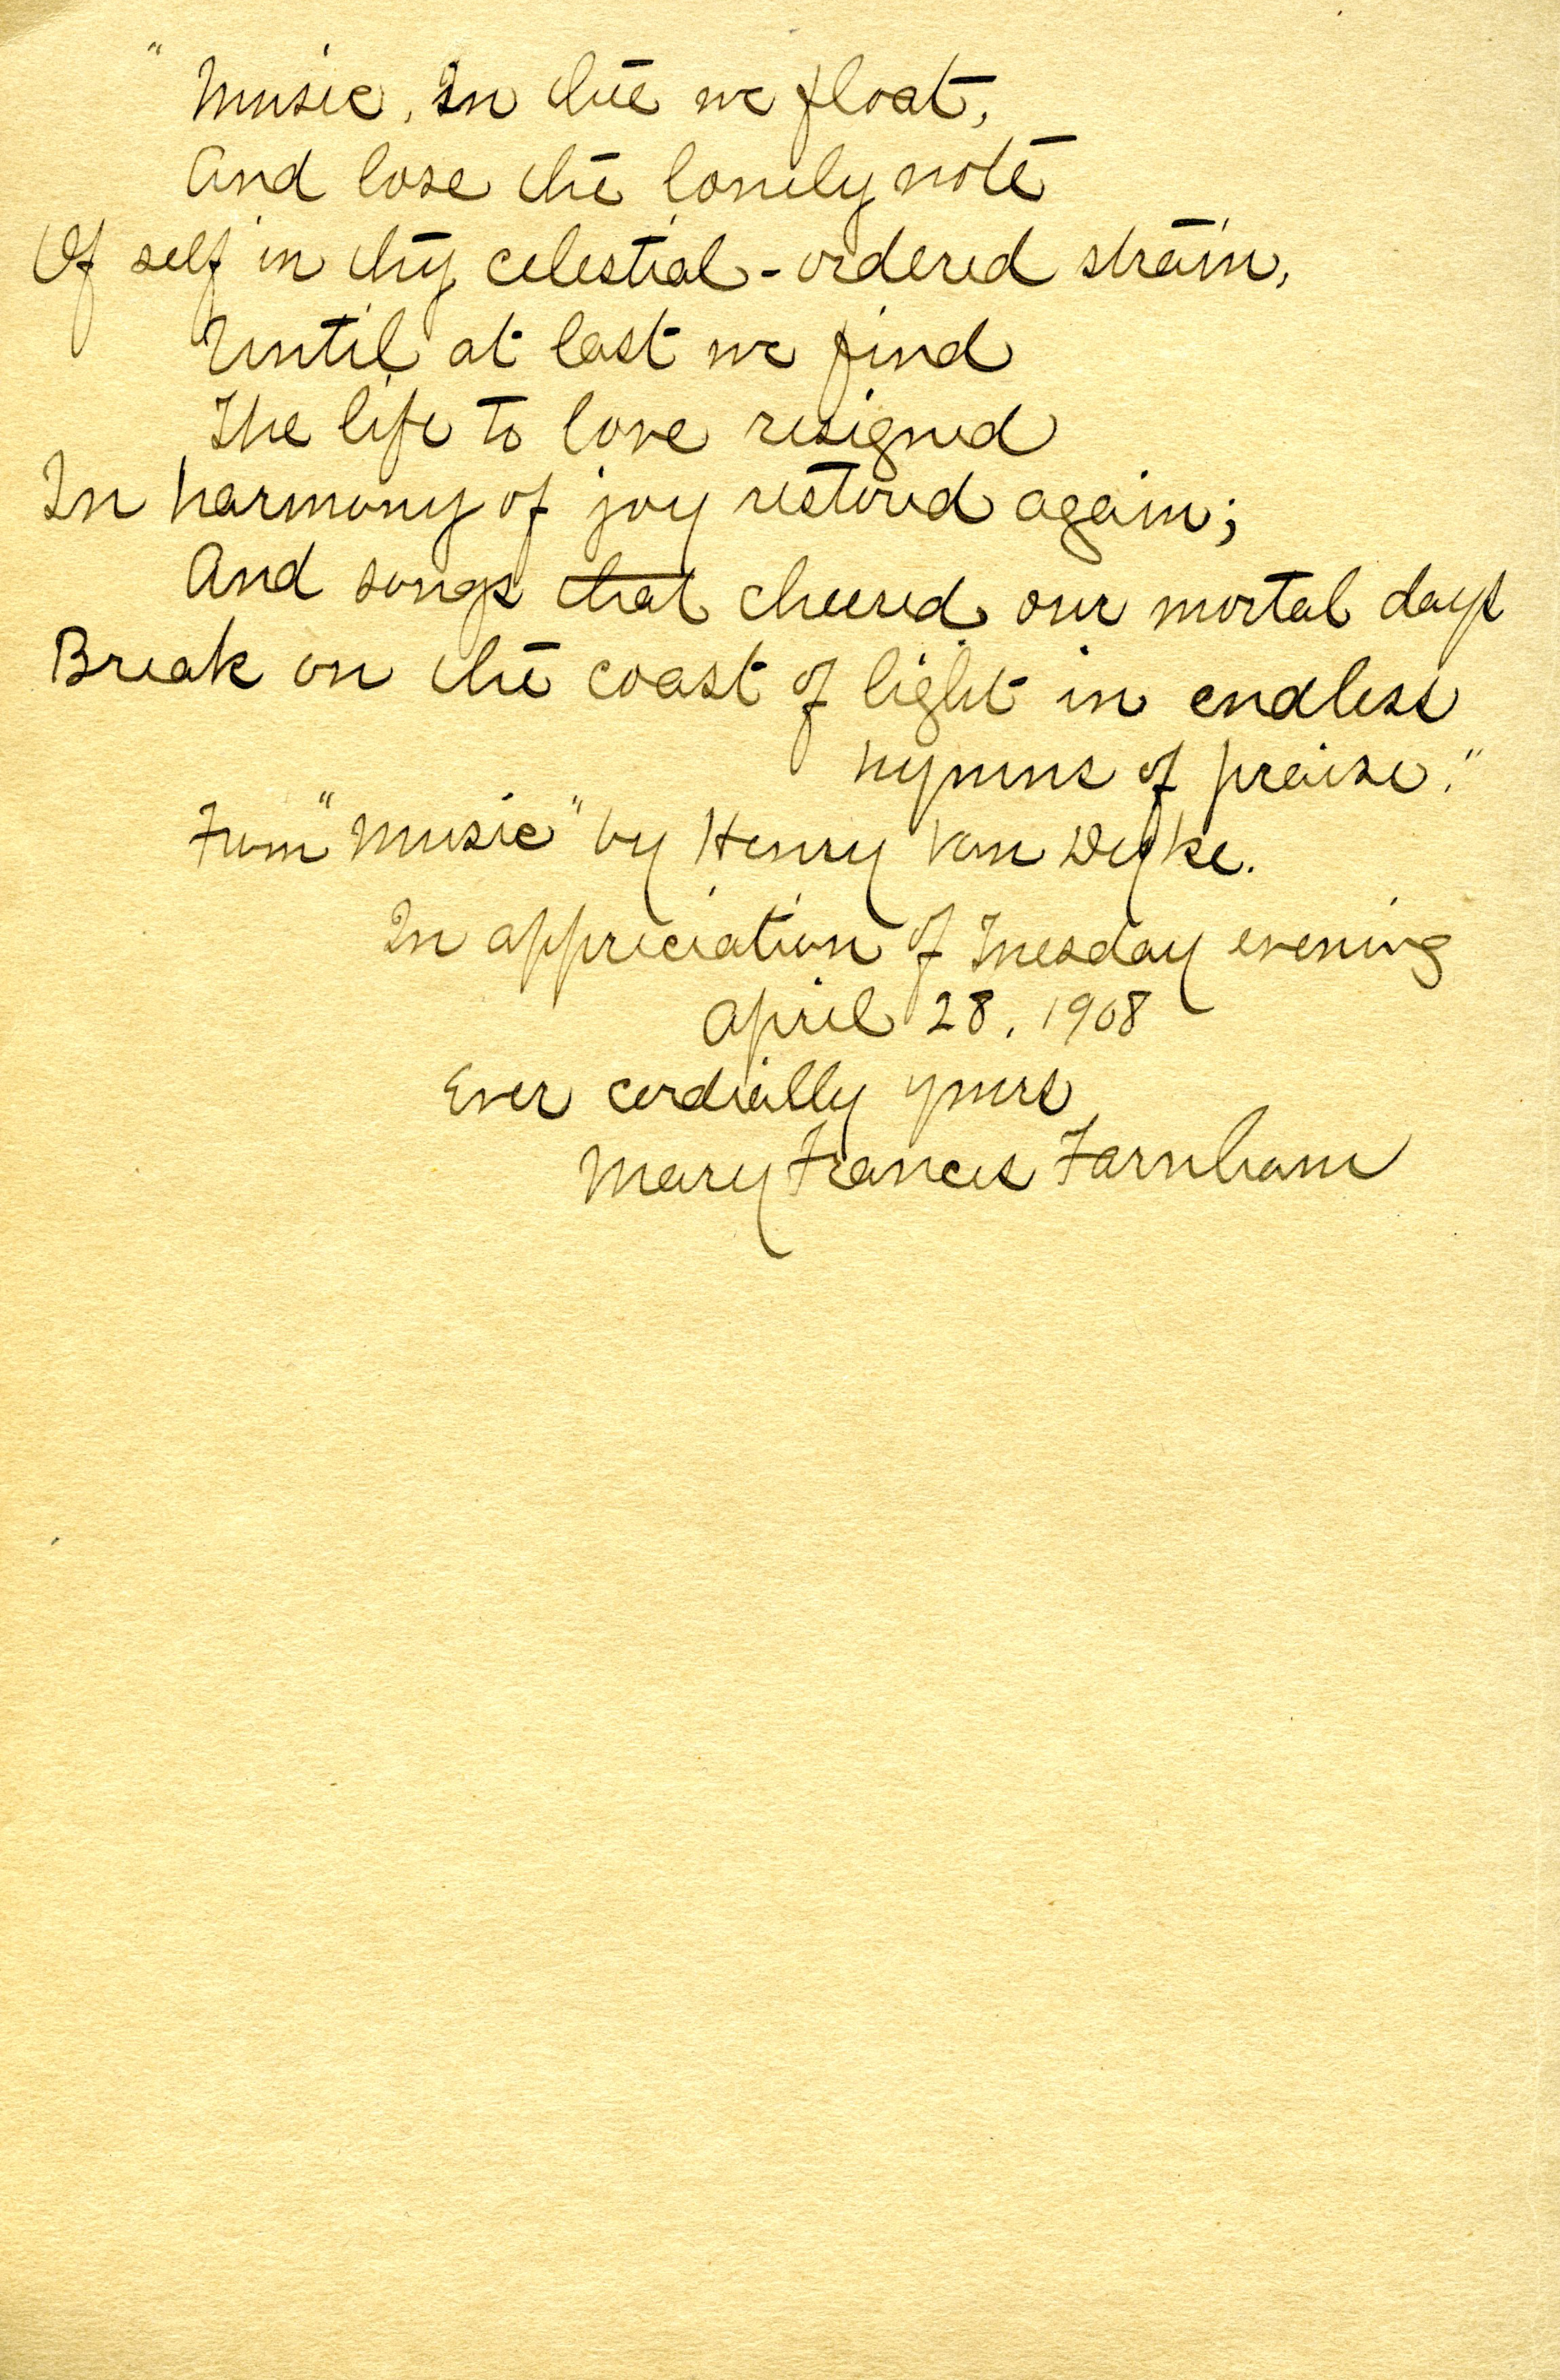 "Music, in thee we float,
And lose the lonely note
Of self in thy celestial-ordered strain,
Until at last we find
The life to love resigned
In harmony of joy restored again;
And songs that cheered our mortal days
Break on the coast of light in endless
hymns of praise."
From "Music" by Henry Van Dyke.
In appreciation of Tuesday evening
April 28, 1908
Ever cordially yours
Mary Frances Farnham